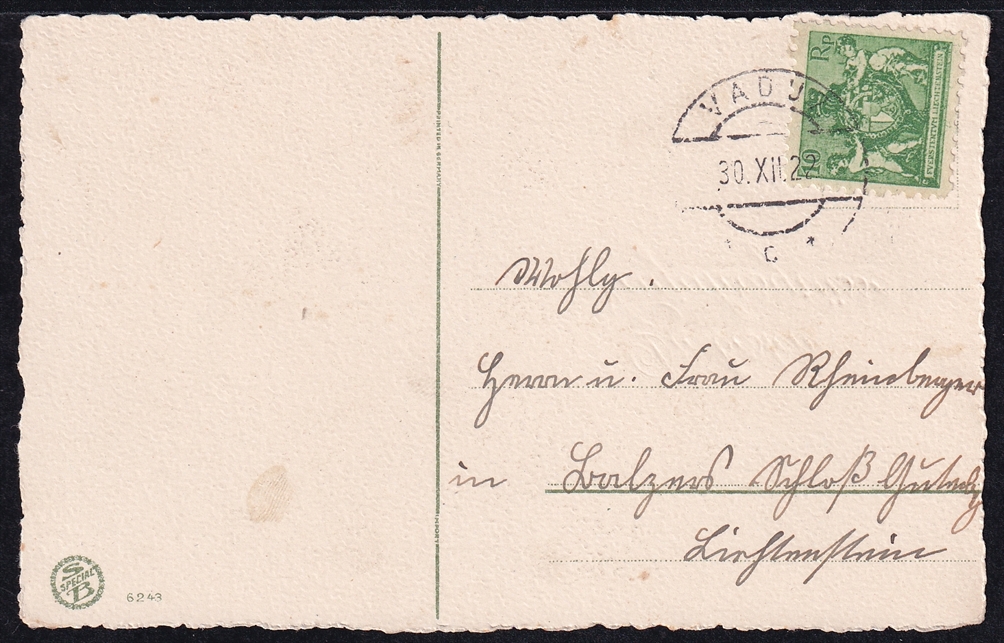 10 Rp
FVERSTENTVM LIECHTENSTEIN
VADUZ
30.XII.22
c
PRINTED IN GERMANY
IMPORT
Wohlg.
Herrn u. Frau Rheinberger
in Balzers Schloß Gutenbg
Liechtenstein
S
SPECIAL
B
6243